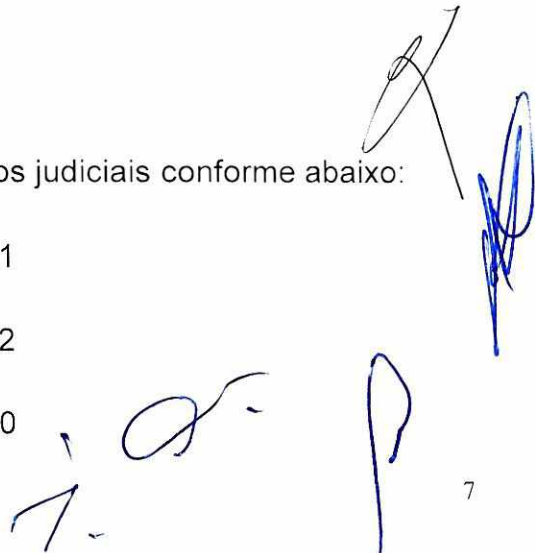 os judiciais conforme abaixo:
1
2
0
7